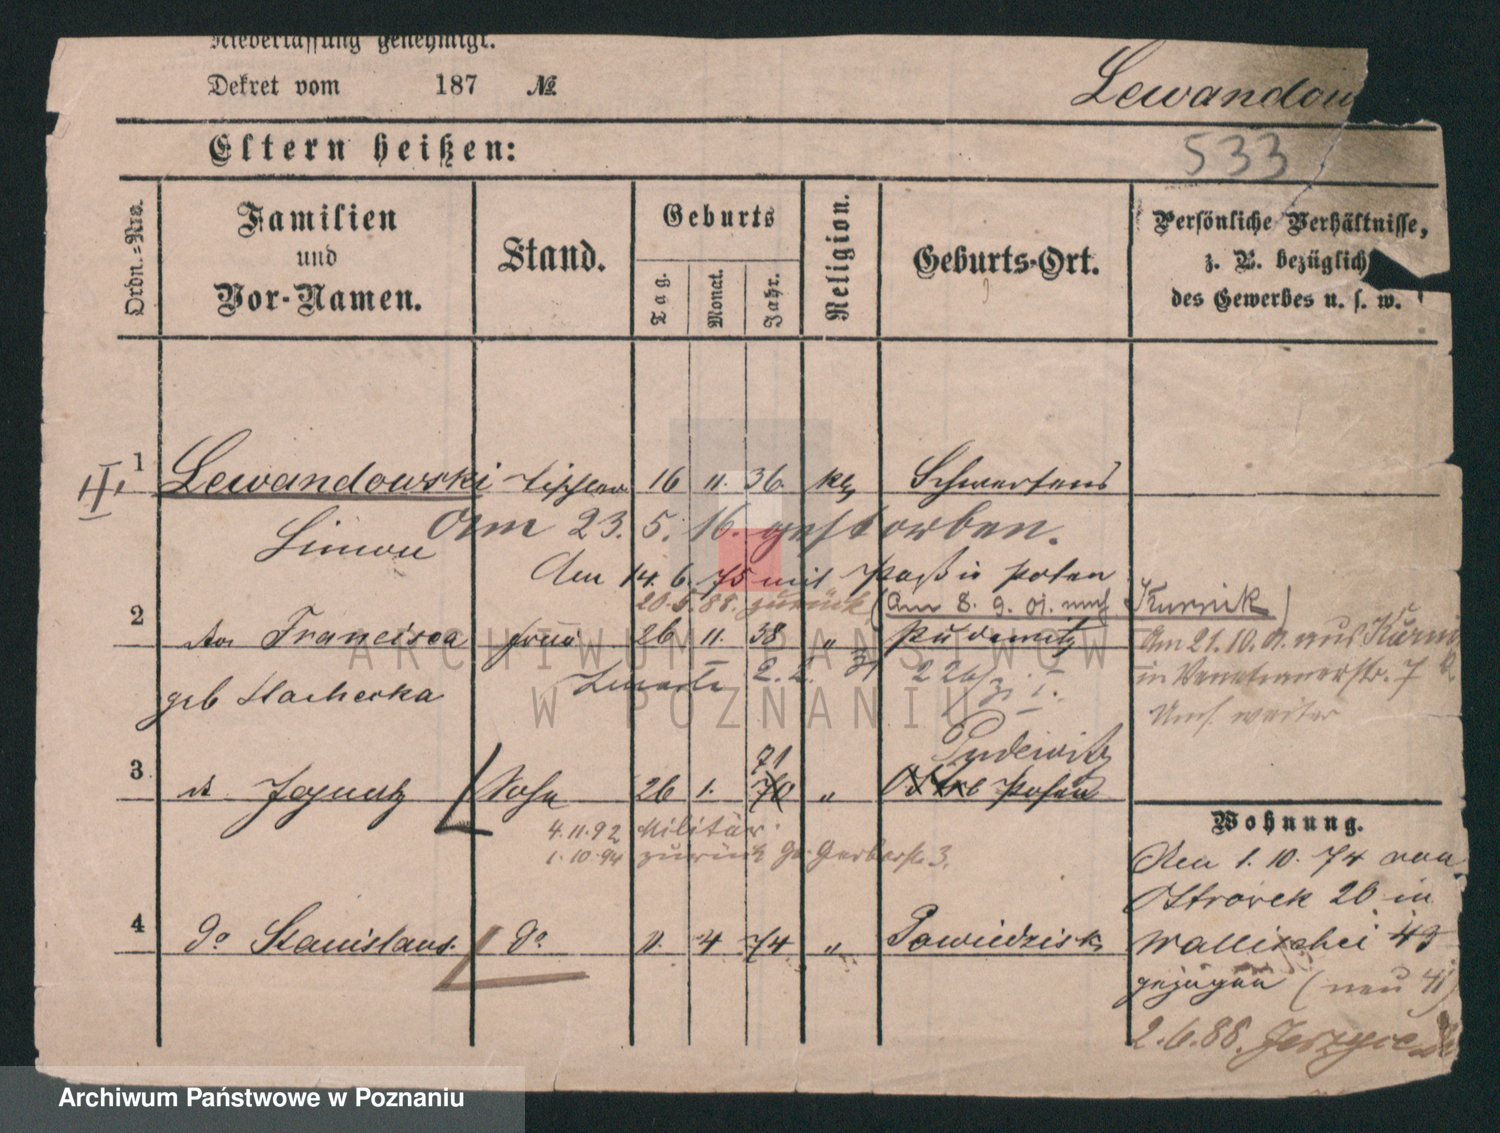 Niederlassung genehmigt.
Dekret vom 187 №
Lewandow
Eltern heißen:
533
Ordn.-Nro.
Familien
und
Vor-Namen.
Stand.
Geburts
Tag.
Monat.
Jahr.
Religion.
Geburts-Ort.
Persönliche Verhältnisse,
z. B. bezüglich
des Gewerbes u. s. w.
1 Lewandowski Tischler 16 11. 36. kth Schwersenz
II.
Simon
Am 23. 5. 16. gestorben.
Am 14. 6. 75 mit Paß in Polen
20.5.88. zurück (Am 8. 9. 01. nach Kurnik)
2 Francisca Frau 26 11. 38 " Pudewitz
geb Stacherka
2. 2.
Am 21.10.01. aus Kurnik
in Venetianerstr. 7
Umf. weiter
Pudewitz
71
3 Ignatz Sohn 26 1. 70 " Posen
4.11.92 Militär.
1.10.94 zurück Gr. Gerberstr. 3.
4 do Stanislaus. do 4 74 "
Wohnung.
Am 1. 10. 74 von
Ostrowek 20 in
Wallischei 45
gezogen (neu 41)
2.6.88.
ARCHIWUM PAŃSTWOWE
W POZNANIU
Archiwum Państwowe w Poznaniu